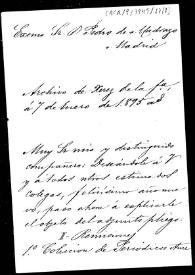 Excmo Sr. D. Pedro de Madrazo
Madrid
Archivo de Jerez de la Fª,
á 7 de Enero de 1895
Muy Sr. mio y distinguido
compañero: Deseándole á V.
y á todos ntros estimados
colegas, felicísimo año nue-
vo, paso ahora á suplicarle
el objeto del adjunto pliego.
I - Remover
1º Coleccion de Periódicos